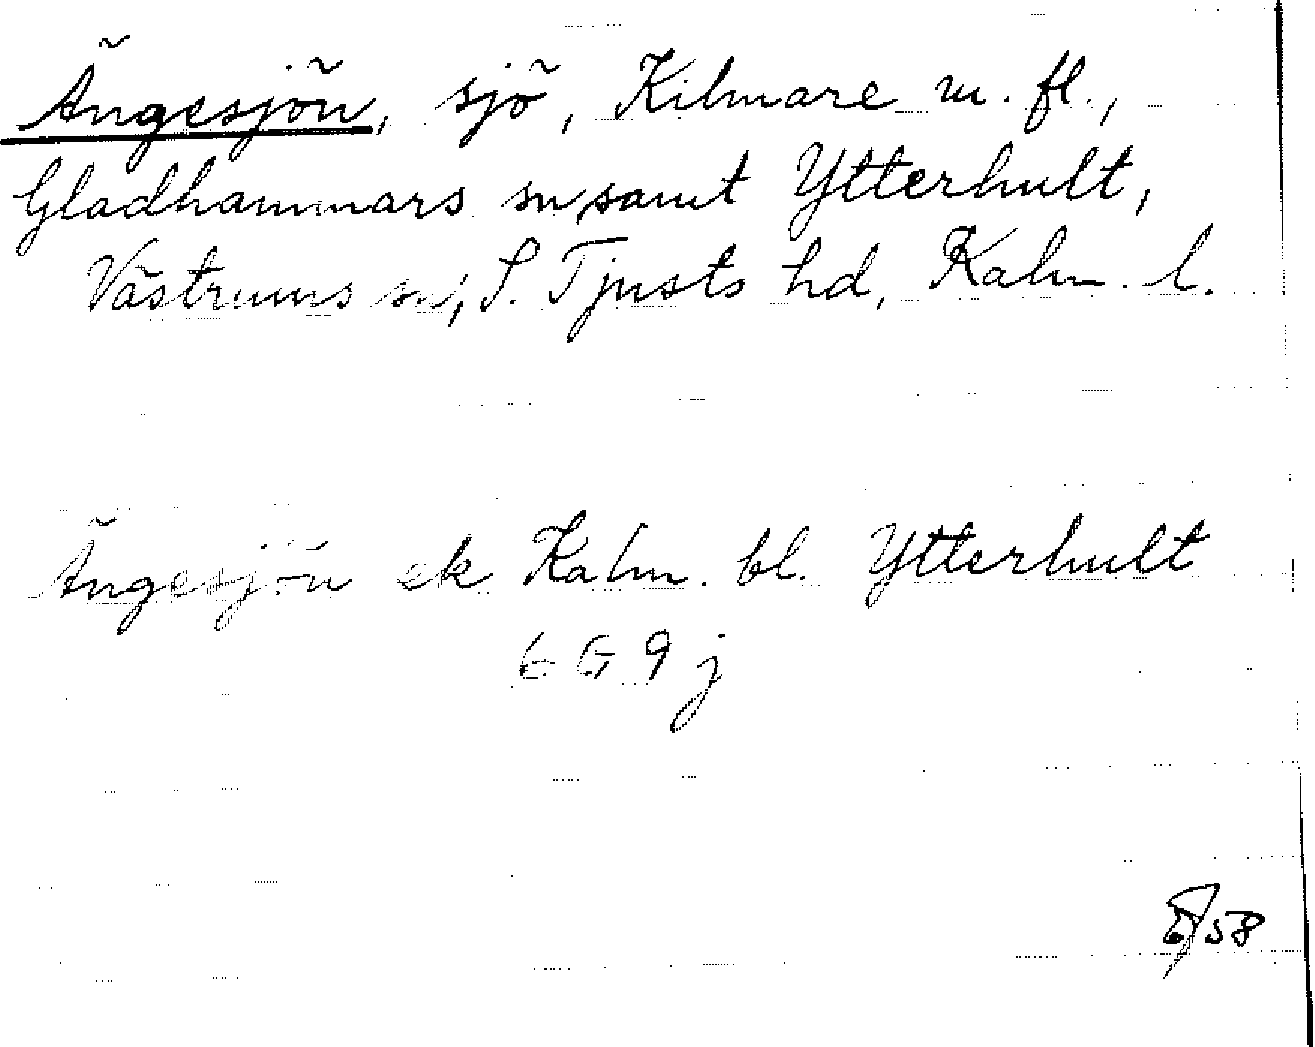 Ängesjön, sjö, Kilmare m. fl.,
Gladhammars sn, samt Ytterhult,
Västrums sn, S. Tjusts hd, Kalm. l.
Ängesjön ek Kalm. bl. Ytterhult
6 G 9 j